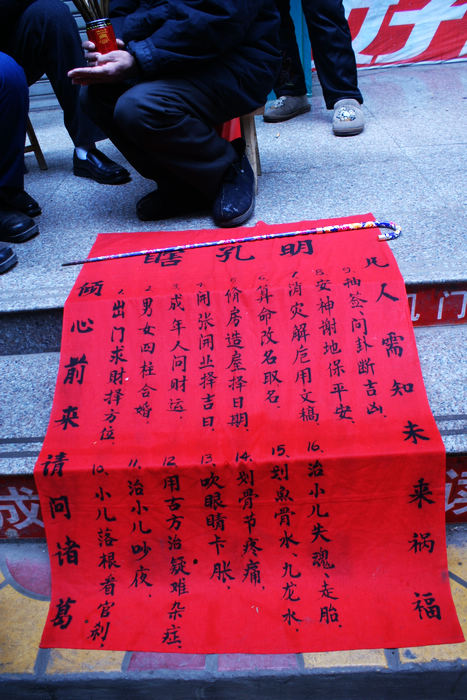 瞻孔明
凡人需知未来祸福
倾心前来请问诸葛
1. 出门求财择方位.
2. 男女四柱合婚.
3. 成年人问财运.
4. 開张開业择吉日.
5. 价房造屋择日期.
6. 算命改名取名.
7. 消灾解厄用文稿.
8. 安神谢地保平安.
9. 抽签、问卦断吉凶.
10. 小儿落根看官刹.
11. 治小儿吵夜.
12. 用古方治疑难杂症.
13. 吹眼睛卡胀.
14. 划骨节疼痛.
15. 划魚骨水、九龙水.
16. 治小儿失魂、走胎.
成
门